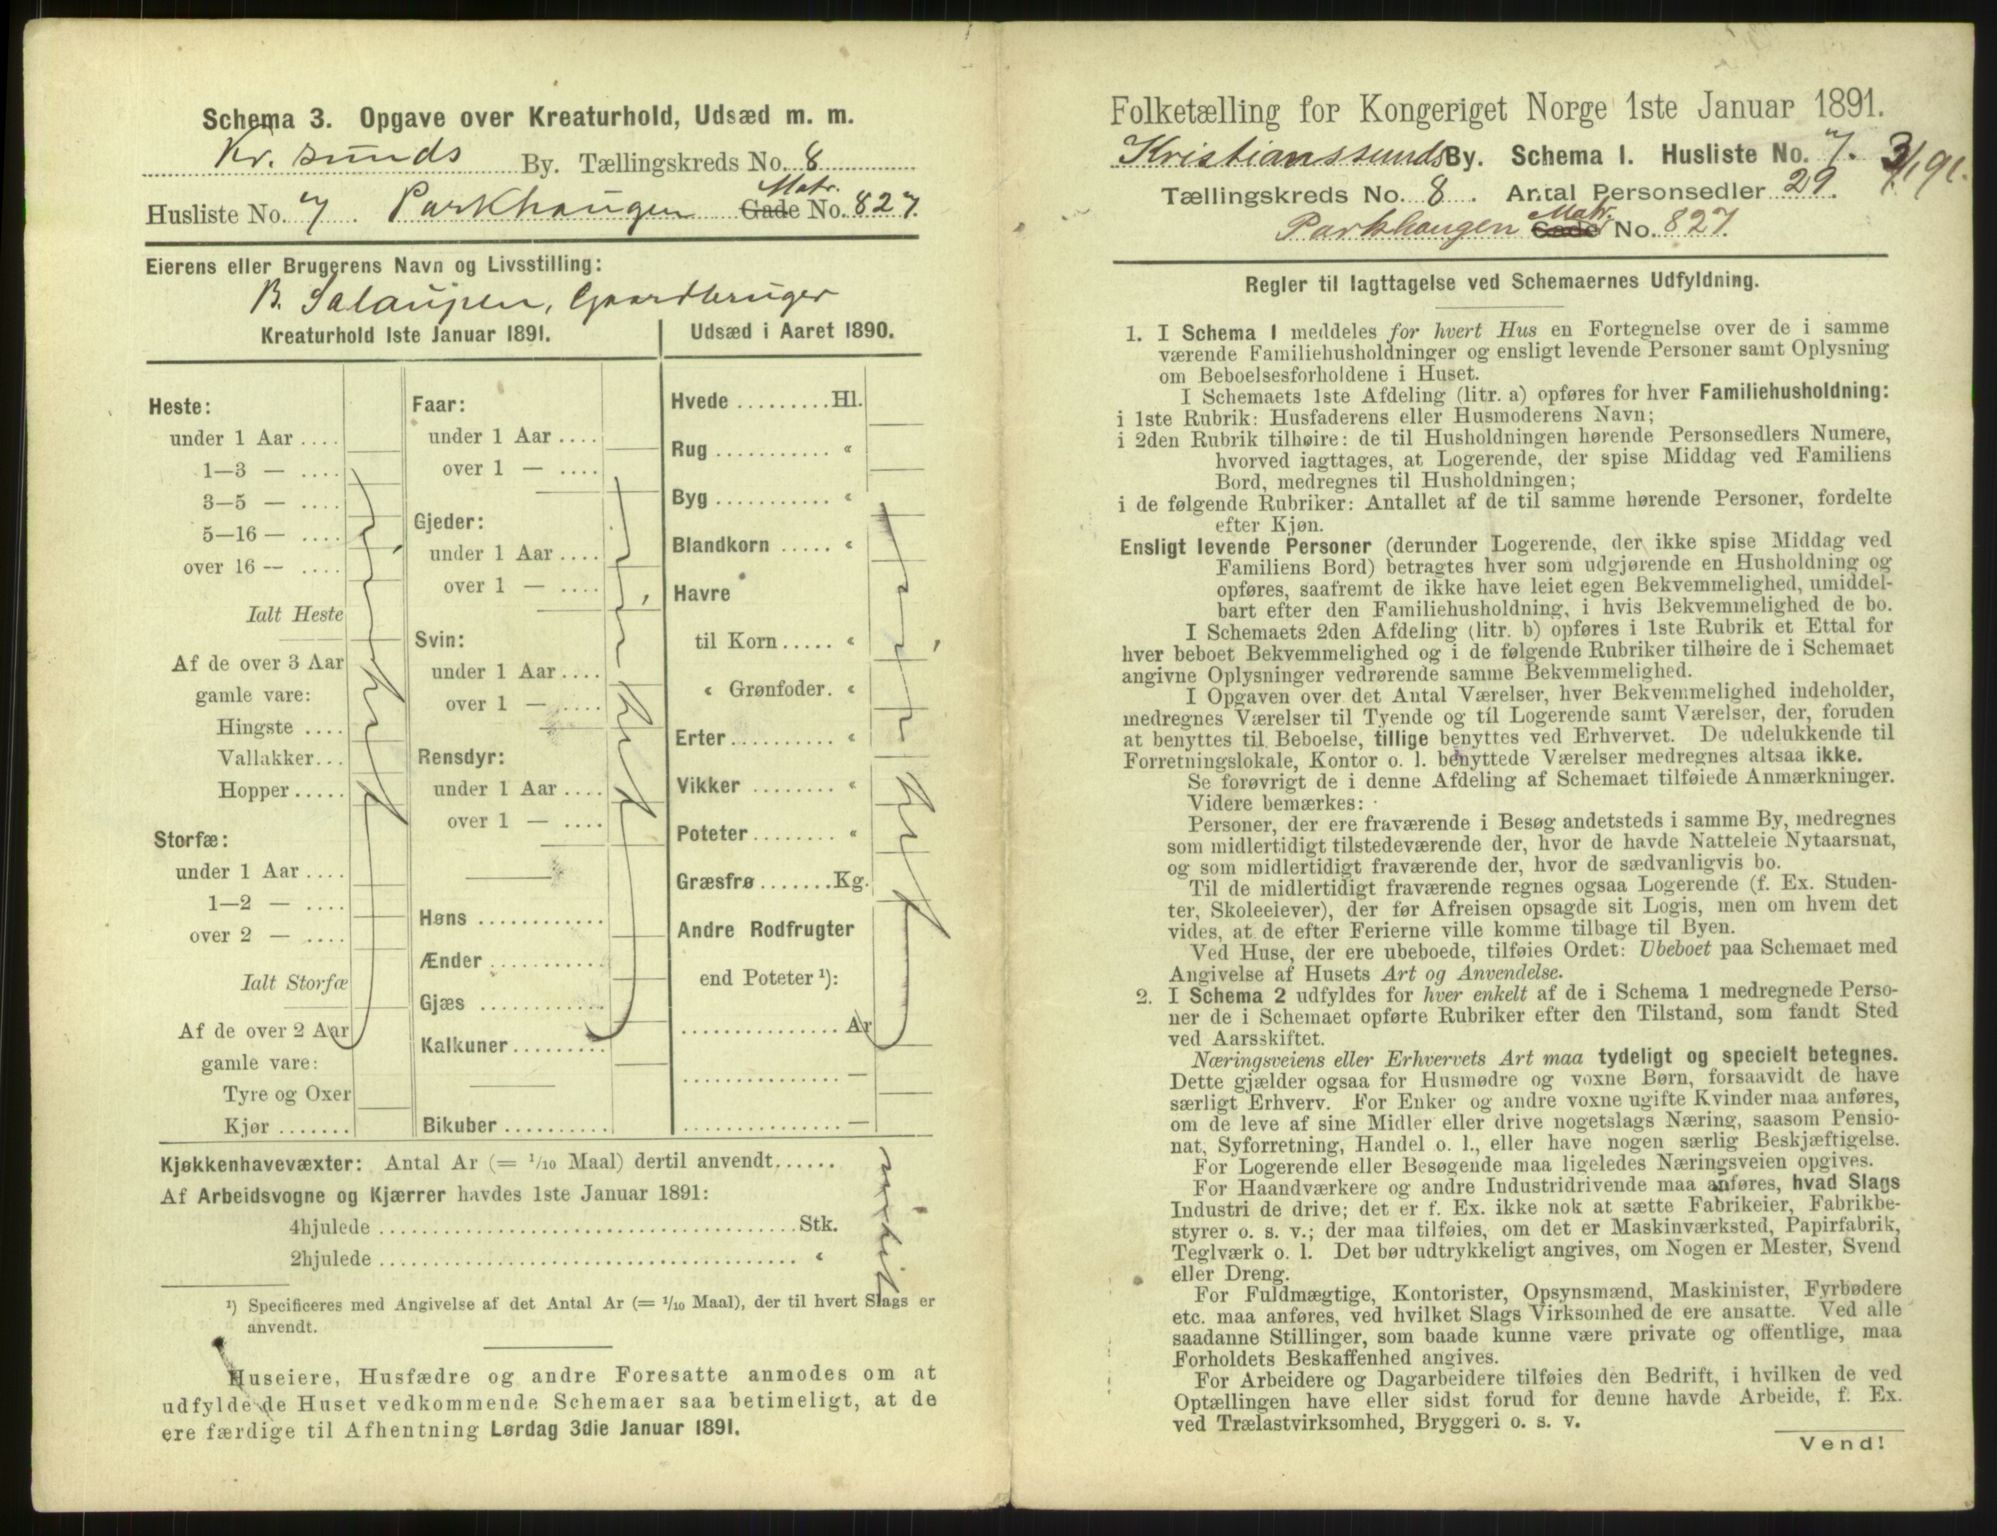 Schema 3. Opgave over Kreaturhold, Udsæd m. m.
Kr. sunds By. Tællingskreds No. 8
Husliste No. 7 Parkhaugen Gade Matr. No. 827.
Eierens eller Brugerens Navn og Livsstilling:
B. Salaupen, Gaardbruger
Kreaturhold 1ste Januar 1891.
Heste:
under 1 Aar ....
1—3 — ....
3—5 — ....
5—16 — ....
over 16 — ....
Ialt Heste
Af de over 3 Aar
gamle vare:
Hingste ....
Vallakker...
Hopper .....
Storfæ:
under 1 Aar ....
1—2 — ....
over 2 — ....
Ialt Storfæ
Af de over 2 Aar
gamle vare:
Tyre og Oxer
Kjør .......
Faar:
under 1 Aar ....
over 1 — ....
Gjeder:
under 1 Aar ....
over 1 — ....
Svin:
under 1 Aar ....
over 1 — ....
Rensdyr:
under 1 Aar ....
over 1 — ....
Høns ............
Ænder ...........
Gjæs ............
Kalkuner.........
Bikuber ..........
Udsæd i Aaret 1890.
Hvede .........Hl.
Rug ........... «
Byg ........... «
Blandkorn ..... «
Havre
til Korn ..... «
« Grønfoder. «
Erter.......... «
Vikker ........ «
Poteter ........ «
Græsfrø .......Kg.
Andre Rodfrugter
end Poteter ¹):
............... Ar
............... —
............... —
Kjøkkenhavevæxter: Antal Ar (= ¹/₁₀ Maal) dertil anvendt......
Af Arbeidsvogne og Kjærrer havdes 1ste Januar 1891:
4hjulede ........................................Stk.
2hjulede ........................................ «
¹) Specificeres med Angivelse af det Antal Ar (= ¹/₁₀ Maal), der til hvert Slags er
anvendt.
Huseiere, Husfædre og andre Foresatte anmodes om at
udfylde de Huset vedkommende Schemaer saa betimeligt, at de
ere færdige til Afhentning Lørdag 3die Januar 1891.
Folketælling for Kongeriget Norge 1ste Januar 1891.
Kristianssunds By. Schema 1. Husliste No. 7. 3/1 91.
Tællingskreds No. 8. Antal Personsedler 29.
Parkhaugen Gade Matr. No. 827.
Regler til Iagttagelse ved Schemaernes Udfyldning.
1. I Schema 1 meddeles for hvert Hus en Fortegnelse over de i samme
værende Familiehusholdninger og ensligt levende Personer samt Oplysning
om Beboelsesforholdene i Huset.
I Schemaets 1ste Afdeling (litr. a) opføres for hver Familiehusholdning:
i 1ste Rubrik: Husfaderens eller Husmoderens Navn;
i 2den Rubrik tilhøire: de til Husholdningen hørende Personsedlers Numere,
hvorved iagttages, at Logerende, der spise Middag ved Familiens
Bord, medregnes til Husholdningen;
i de følgende Rubriker: Antallet af de til samme hørende Personer, fordelte
efter Kjøn.
Ensligt levende Personer (derunder Logerende, der ikke spise Middag ved
Familiens Bord) betragtes hver som udgjørende en Husholdning og
opføres, saafremt de ikke have leiet egen Bekvemmelighed, umiddel-
bart efter den Familiehusholdning, i hvis Bekvemmelighed de bo.
I Schemaets 2den Afdeling (litr. b) opføres i 1ste Rubrik et Ettal for
hver beboet Bekvemmelighed og i de følgende Rubriker tilhøire de i Schemaet
angivne Oplysninger vedrørende samme Bekvemmelighed.
I Opgaven over det Antal Værelser, hver Bekvemmelighed indeholder,
medregnes Værelser til Tyende og til Logerende samt Værelser, der, foruden
at benyttes til Beboelse, tillige benyttes ved Erhvervet. De udelukkende til
Forretningslokale, Kontor o. l. benyttede Værelser medregnes altsaa ikke.
Se forøvrigt de i denne Afdeling af Schemaet tilføiede Anmærkninger.
Videre bemærkes:
Personer, der ere fraværende i Besøg andetsteds i samme By, medregnes
som midlertidigt tilstedeværende der, hvor de havde Natteleie Nytaarsnat,
og som midlertidigt fraværende der, hvor de sædvanligvis bo.
Til de midlertidigt fraværende regnes ogsaa Logerende (f. Ex. Studen-
ter, Skoleelever), der før Afreisen opsagde sit Logis, men om hvem det
vides, at de efter Ferierne ville komme tilbage til Byen.
Ved Huse, der ere ubeboede, tilføies Ordet: Ubeboet paa Schemaet med
Angivelse af Husets Art og Anvendelse.
2. I Schema 2 udfyldes for hver enkelt af de i Schema 1 medregnede Perso-
ner de i Schemaet opførte Rubriker efter den Tilstand, som fandt Sted
ved Aarsskiftet.
Næringsveiens eller Erhvervets Art maa tydeligt og specielt betegnes.
Dette gjælder ogsaa for Husmødre og voxne Børn, forsaavidt de have
særligt Erhverv. For Enker og andre voxne ugifte Kvinder maa anføres,
om de leve af sine Midler eller drive nogetslags Næring, saasom Pensio-
nat, Syforretning, Handel o. l., eller have nogen særlig Beskjæftigelse.
For Logerende eller Besøgende maa ligeledes Næringsveien opgives.
For Haandværkere og andre Industridrivende maa anføres, hvad Slags
Industri de drive; det er f. Ex. ikke nok at sætte Fabrikeier, Fabrikbe-
styrer o. s. v.; der maa tilføies, om det er Maskinværksted, Papirfabrik,
Teglværk o. l. Det bør udtrykkeligt angives, om Nogen er Mester, Svend
eller Dreng.
For Fuldmægtige, Kontorister, Opsynsmænd, Maskinister, Fyrbødere
etc. maa anføres, ved hvilket Slags Virksomhed de ere ansatte. Ved alle
saadanne Stillinger, som baade kunne være private og offentlige, maa
Forholdets Beskaffenhed angives.
For Arbeidere og Dagarbeidere tilføies den Bedrift, i hvilken de ved
Optællingen have eller sidst forud for denne havde Arbeide, f. Ex.
ved Trælastvirksomhed, Bryggeri o. s. v.
Vend!